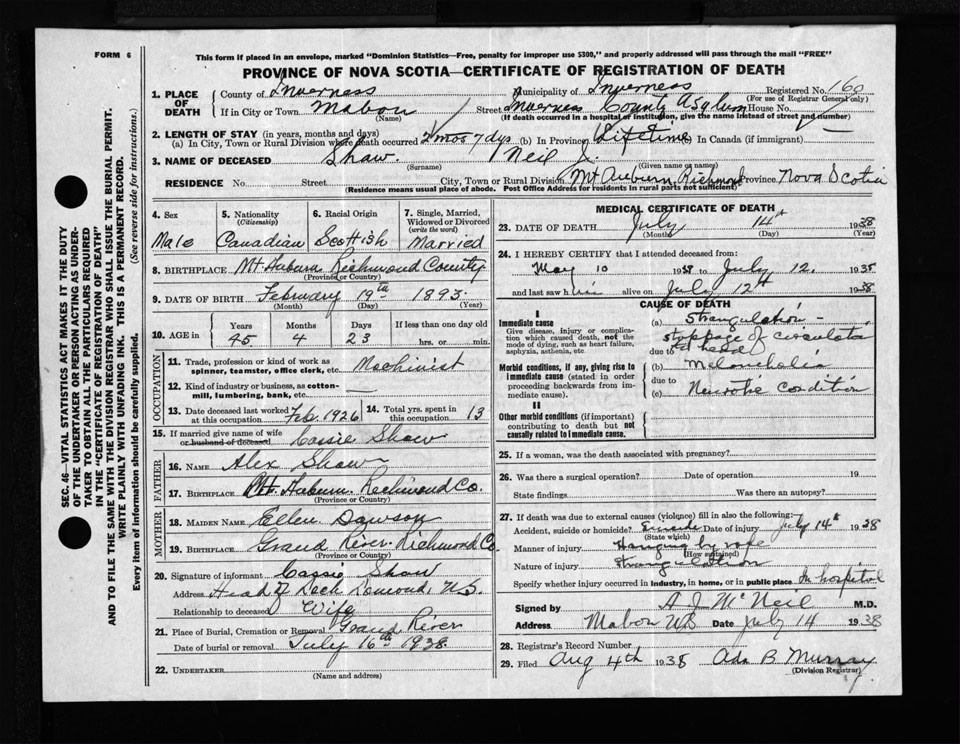 FORM 6
This form if placed in an envelope, marked "Dominion Statistics—Free, penalty for improper use $300," and properly addressed will pass through the mail "FREE"
PROVINCE OF NOVA SCOTIA—CERTIFICATE OF REGISTRATION OF DEATH
1. PLACE OF DEATH County of Inverness Municipality of Inverness Registered No. 160
(For use of Registrar General only)
If in City or Town Mabou Street Inverness County Asylum House No.
(Name) (If death occurred in a hospital or institution, give the name instead of street and number)
2. LENGTH OF STAY (in years, months and days)
(a) In City, Town or Rural Division where death occurred 2 mos 7 dys (b) In Province Lifetime (c) In Canada (if immigrant)
3. NAME OF DECEASED Shaw Neil J.
(Surname) (Given name or names)
RESIDENCE No. Street City, Town or Rural Division Mt Auburn, Richmond Province Nova Scotia
(Residence means usual place of abode. Post Office Address for residents in rural parts not sufficient)
4. Sex Male
5. Nationality (Citizenship) Canadian
6. Racial Origin Scottish
7. Single, Married, Widowed or Divorced (write the word) Married
8. BIRTHPLACE Mt. Auburn Richmond County
(Province or Country)
9. DATE OF BIRTH February 19th 1893
(Month) (Day) (Year)
10. AGE in Years 45 Months 4 Days 23 If less than one day old hrs. or min.
OCCUPATION
11. Trade, profession or kind of work as spinner, teamster, office clerk, etc. Machinist
12. Kind of industry or business, as cotton-mill, lumbering, bank, etc.
13. Date deceased last worked at this occupation Feb. 1926 14. Total yrs. spent in this occupation 13
15. If married give name of wife or husband of deceased Cassie Shaw
FATHER
16. NAME Alex Shaw
17. BIRTHPLACE Mt. Auburn Richmond Co.
(Province or Country)
MOTHER
18. MAIDEN NAME Ellen Dawson
19. BIRTHPLACE Grand River Richmond Co
(Province or Country)
20. Signature of informant Cassie Shaw
Address Head of Loch Lomond, N.S.
Relationship to deceased Wife
21. Place of Burial, Cremation or Removal Grand River
Date of burial or removal July 16th 1938
22. UNDERTAKER
(Name and address)
MEDICAL CERTIFICATE OF DEATH
23. DATE OF DEATH July 14th 1938
(Month) (Day) (Year)
24. I HEREBY CERTIFY that I attended deceased from:
May 10 1938 to July 12. 1938
and last saw him alive on July 12th 1938
CAUSE OF DEATH
I
Immediate cause
Give disease, injury or complication which caused death, not the mode of dying, such as heart failure, asphyxia, asthenia, etc.
(a) Strangulation - stoppage of circulation
due to
Morbid conditions, if any, giving rise to immediate cause (stated in order proceeding backwards from immediate cause).
(b) Melancholia
due to
(c) Neurotic Condition
II
Other morbid conditions (if important) contributing to death but not causally related to immediate cause.
25. If a woman, was the death associated with pregnancy?
26. Was there a surgical operation? Date of operation 19
State findings Was there an autopsy?
27. If death was due to external causes (violence) fill in also the following:
Accident, suicide or homicide? Suicide Date of injury July 14th 1938
(State which)
Manner of injury Hanging by rope
(How sustained)
Nature of injury Strangulation
Specify whether injury occurred in industry, in home, or in public place In hospital
Signed by A J McNeil M.D.
Address Mabou NS Date July 14 1938
28. Registrar's Record Number
29. Filed Aug 4th 1938 Ada B Murray
(Division Registrar)
SEC. 46—VITAL STATISTICS ACT MAKES IT THE DUTY
OF THE UNDERTAKER OR PERSON ACTING AS UNDER-
TAKER TO OBTAIN ALL THE PARTICULARS REQUIRED
IN THE "CERTIFICATE OF REGISTRATION OF DEATH"
AND TO FILE THE SAME WITH THE DIVISION REGISTRAR WHO SHALL ISSUE THE BURIAL PERMIT.
WRITE PLAINLY WITH UNFADING INK. THIS IS A PERMANENT RECORD.
Every item of information should be carefully supplied. (See reverse side for instructions.)